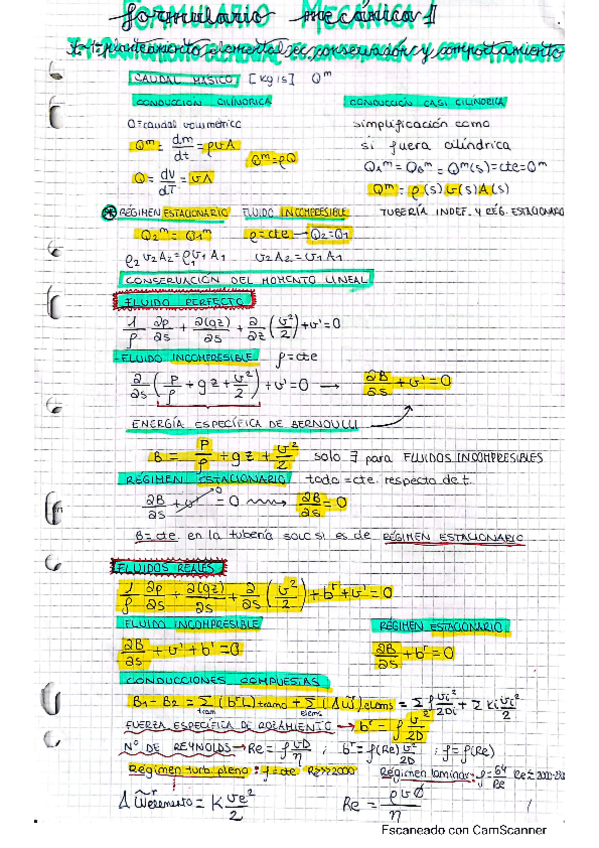 FORMULARIO MECÁNICA 1
T-1: planteamiento elemental ec. conservación y comportamiento
CAUDAL MÁSICO [kg/s] Qᵐ
CONDUCCIÓN CILÍNDRICA
CONDUCCIÓN CASI CILÍNDRICA
Q=caudal volumétrico
simplificación como
Qᵐ = dm/dt = ρvA
Qᵐ=ρQ
si fuera cilíndrica
Q = dV/dT = vA
Q₁ᵐ = Q₀ᵐ = Qᵐ(s)=cte=Qᵐ
Qᵐ = ρ(s)v(s)A(s)
RÉGIMEN ESTACIONARIO FLUIDO INCOMPRESIBLE
TUBERÍA INDEF. Y RÉG. ESTACIONARIO
Q₂ᵐ = Q₁ᵐ ρ=cte → Q₂=Q₁
ρ₂v₂A₂=ρ₁v₁A₁ v₂A₂=v₁A₁
CONSERVACIÓN DEL MOMENTO LINEAL
FLUIDO PERFECTO
1/ρ ∂p/∂s + ∂(gz)/∂s + ∂/∂z (v²/2)+v'=0
FLUIDO INCOMPRESIBLE ρ=cte
∂/∂s (P/ρ + gz + v²/2) + v'=0 → ∂B/∂s + v'=0
ENERGÍA ESPECÍFICA DE BERNOULLI
B = P/ρ + gz + v²/2 solo ∃ para FLUIDOS INCOMPRESIBLES
RÉGIMEN ESTACIONARIO todo =cte. respecto de t.
∂B/∂s + v'→0 = 0 → ∂B/∂s = 0
B=cte. en la tubería solo si es de RÉGIMEN ESTACIONARIO
FLUIDOS REALES
1/ρ ∂p/∂s + ∂(gz)/∂s + ∂/∂s (v²/2) + bʳ+v'=0
FLUIDO INCOMPRESIBLE
RÉGIMEN ESTACIONARIO
∂B/∂s + v' + bʳ = 0
∂B/∂s + bʳ = 0
CONDUCCIONES COMPUESTAS
B₁ - B₂ = Σ (bʳL)tramo + Σ (Δw̃ʳ)elems = Σ f vᵢ²/2Dᵢ + Σ kᵢ vᵢ²/2
tram elems
FUERZA ESPECÍFICA DE ROZAMIENTO → bʳ = f v²/2D
Nº DE REYNOLDS → Re = ρvD/η ; bʳ = f(Re) v²/2D ; f = f(Re)
Régimen turb pleno: f=cte Re>>2000
Régimen laminar: f=64/Re
Δw̃ʳelemento = K ve²/2
Re = ρvØ/η
Escaneado con CamScanner